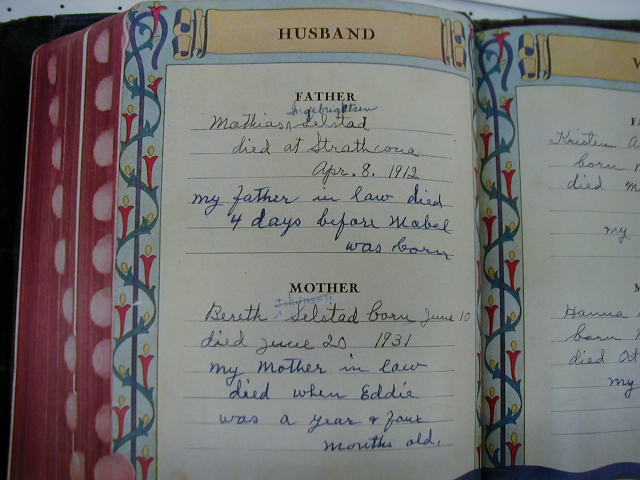 HUSBAND
FATHER
Ingebrigtsen
Mathias Selstad
died at Strathcona
Apr. 8. 1912
my father in law died
4 days before Mabel
was born
MOTHER
Bereth Selstad born June 10
died June 20 1931
my Mother in law
died when Eddie
was a year & four
months old.
W
Kristen
born
died
my
Hanna
born
died Oct
my